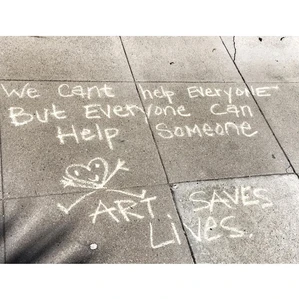 We Cant help Everyone
But Everyone Can
Help Someone
ART. SAVES
LIVES.